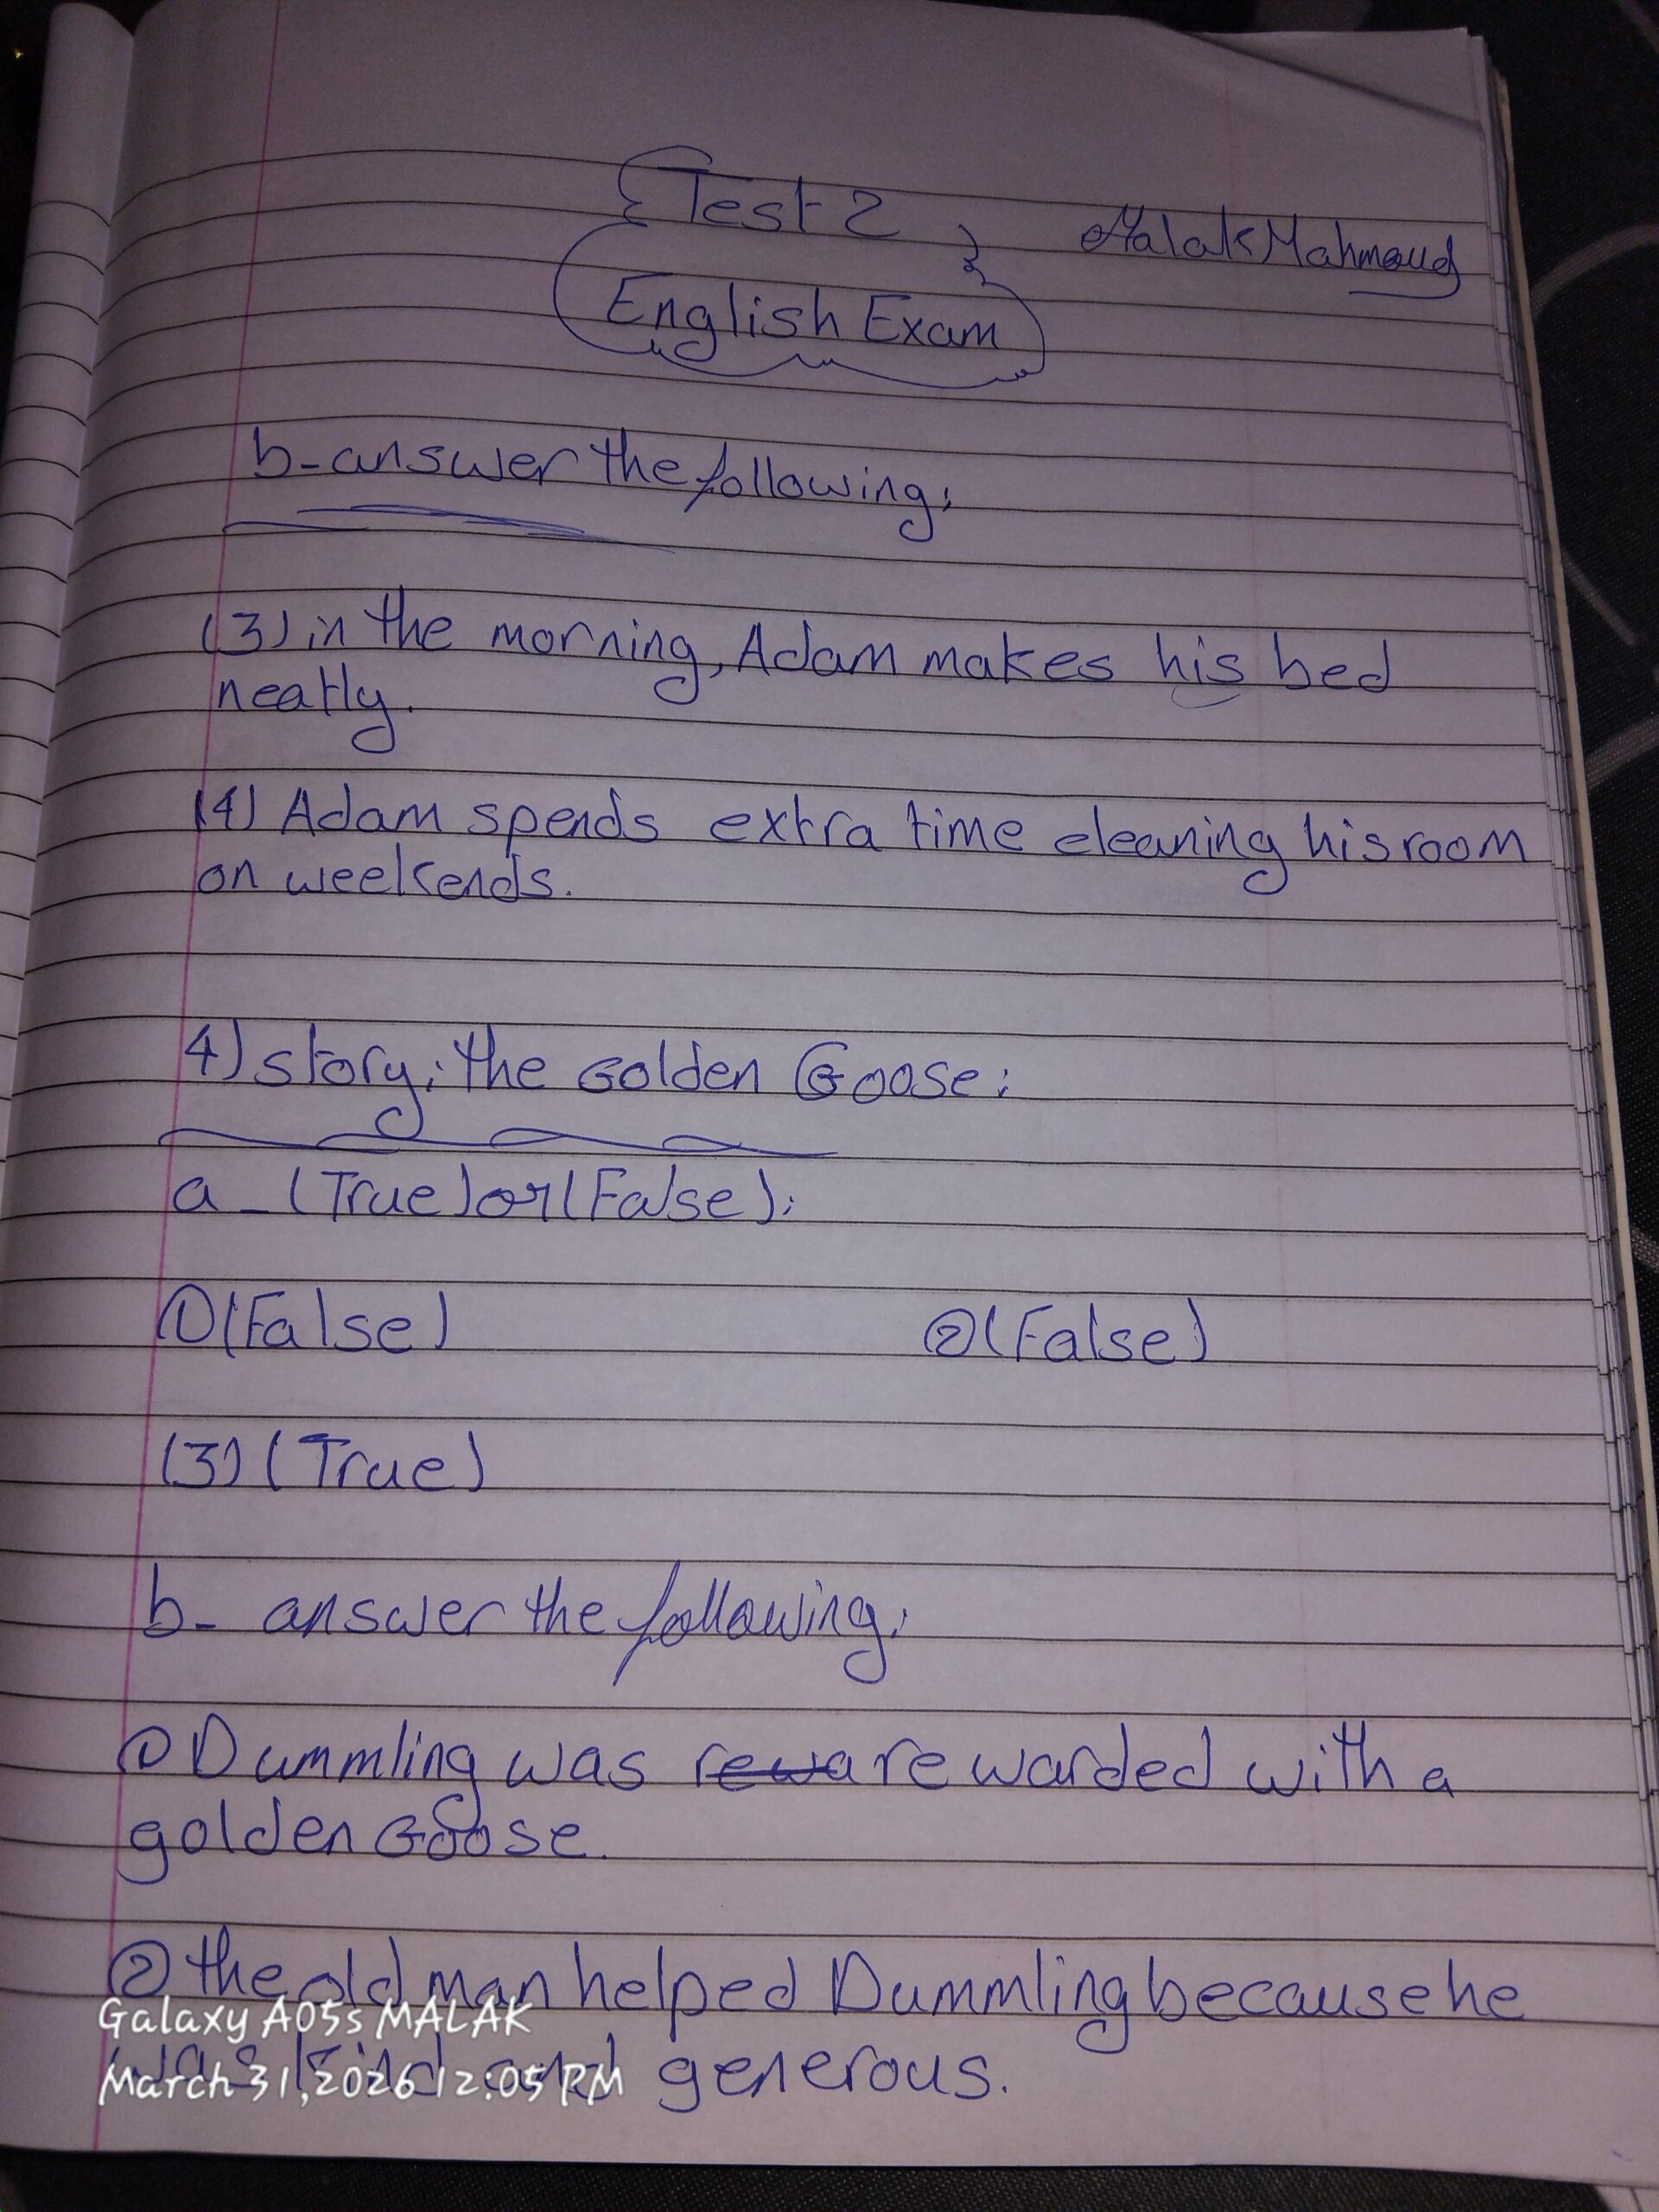 Test 2
Malak Mahmoud
English Exam
b- answer the following:
(3) in the morning, Adam makes his bed
neatly.
(4) Adam spends extra time cleaning his room
on weekends.
4) story: the Golden Goose:
a - (True) or (False):
① (False) ② (False)
(3) (True)
b- answer the following:
① Dummling was rewa rewarded with a
golden Goose.
② the old man helped Dummling because he
was kind and generous.
Galaxy A05s MALAK
March 31, 2026 12:05 PM